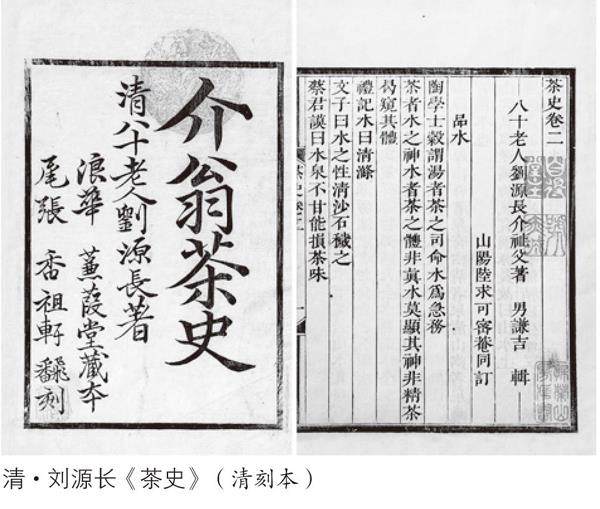 介翁茶史
清八十老人劉源長著
浪華 蒹葭堂藏本
尾張 香祖軒翻刻
茶史卷二
八十老人劉源長介祉父著 男謙吉 輯
山陽陸求可密菴同訂
品水
陶學士穀謂湯者茶之司命水爲急務
茶者水之神水者茶之體非眞水莫顯其神非精茶
曷窺其體
禮記水曰清滌
文子曰水之性清沙石穢之
蔡君謨曰水泉不甘能損茶味
茶史卷二
一
清·刘源长《茶史》（清刻本）